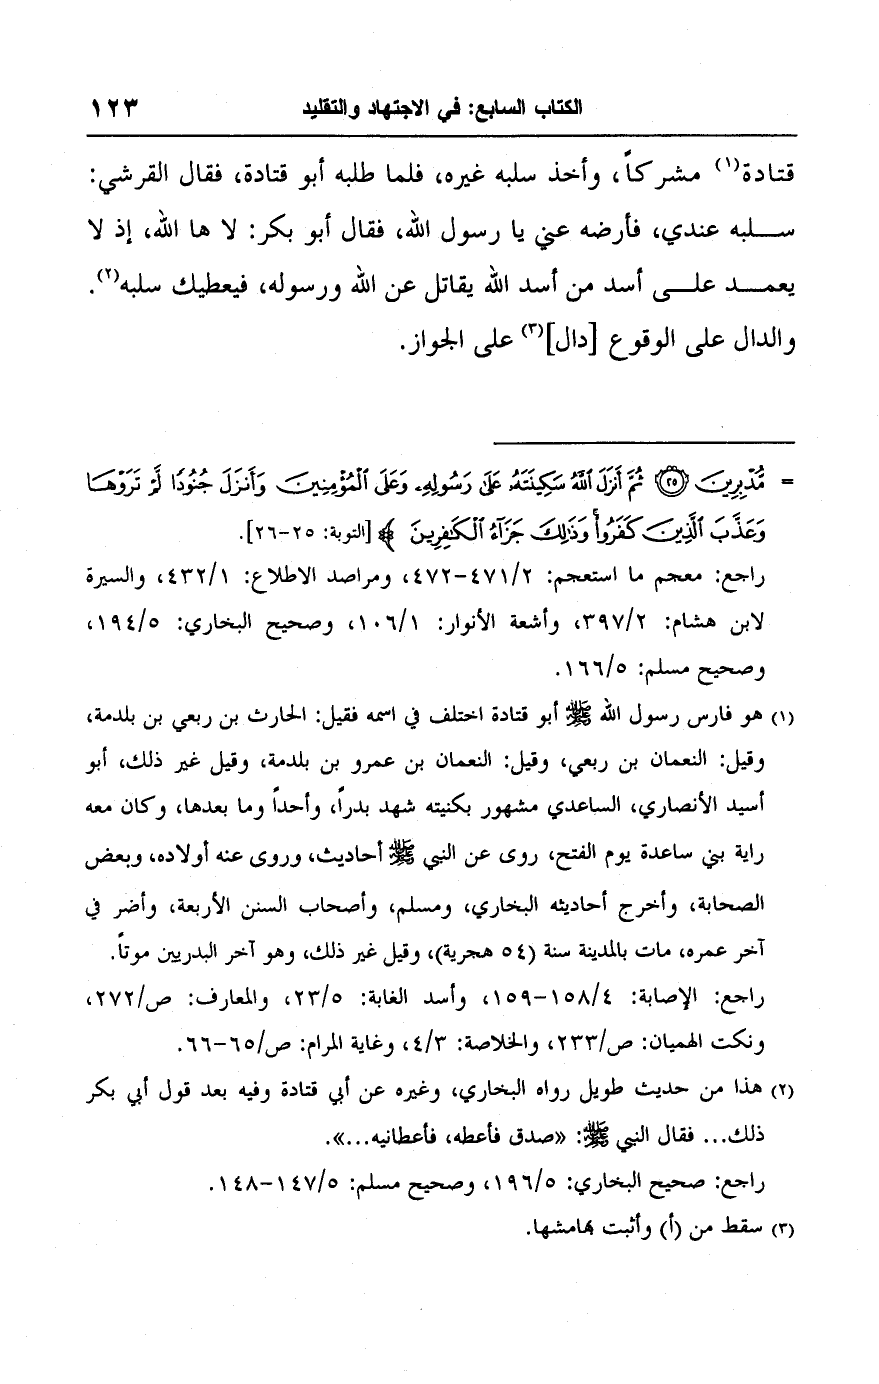 الكتاب السابع: في الاجتهاد والتقليد ١٢٣
قتادة(١) مشركاً، وأخذ سلبه غيره، فلما طلبه أبو قتادة، فقال القرشي:
سلبه عندي، فأرضه عني يا رسول الله، فقال أبو بكر: لا ها الله، إذ لا
يعمد على أسد من أسد الله يقاتل عن الله ورسوله، فيعطيك سلبه(٢).
والدال على الوقوع [دال](٣) على الجواز.
= مُّدْبِرِينَ ﴿٢٥﴾ ثُمَّ أَنزَلَ ٱللَّهُ سَكِينَتَهُۥ عَلَىٰ رَسُولِهِۦ وَعَلَى ٱلْمُؤْمِنِينَ وَأَنزَلَ جُنُودًا لَّمْ تَرَوْهَا
وَعَذَّبَ ٱلَّذِينَ كَفَرُوا۟ وَذَٰلِكَ جَزَآءُ ٱلْكَٰفِرِينَ ﴾ [التوبة: ٢٥-٢٦].
راجع: معجم ما استعجم: ٤٧١/٢-٤٧٢، ومراصد الاطلاع: ٤٣٢/١، والسيرة
لابن هشام: ٣٩٧/٢، وأشعة الأنوار: ١٠٦/١، وصحيح البخاري: ١٩٤/٥،
وصحيح مسلم: ١٦٦/٥.
(١) هو فارس رسول الله ﷺ أبو قتادة اختلف في اسمه فقيل: الحارث بن ربعي بن بلدمة،
وقيل: النعمان بن ربعي، وقيل: النعمان بن عمرو بن بلدمة، وقيل غير ذلك، أبو
أسيد الأنصاري، الساعدي مشهور بكنيته شهد بدراً، وأحداً وما بعدها، وكان معه
راية بني ساعدة يوم الفتح، روى عن النبي ﷺ أحاديث، وروى عنه أولاده، وبعض
الصحابة، وأخرج أحاديثه البخاري، ومسلم، وأصحاب السنن الأربعة، وأضر في
آخر عمره، مات بالمدينة سنة (٥٤ هجرية)، وقيل غير ذلك، وهو آخر البدريين موتاً.
راجع: الإصابة: ١٥٨/٤-١٥٩، وأسد الغابة: ٢٣/٥، والمعارف: ص/٢٧٢،
ونكت الهميان: ص/٢٣٣، والخلاصة: ٤/٣، وغاية المرام: ص/٦٥-٦٦.
(٢) هذا من حديث طويل رواه البخاري، وغيره عن أبي قتادة وفيه بعد قول أبي بكر
ذلك... فقال النبي ﷺ: «صدق فأعطه، فأعطانيه...».
راجع: صحيح البخاري: ١٩٦/٥، وصحيح مسلم: ١٤٧/٥-١٤٨.
(٣) سقط من (أ) وأثبت بهامشها.